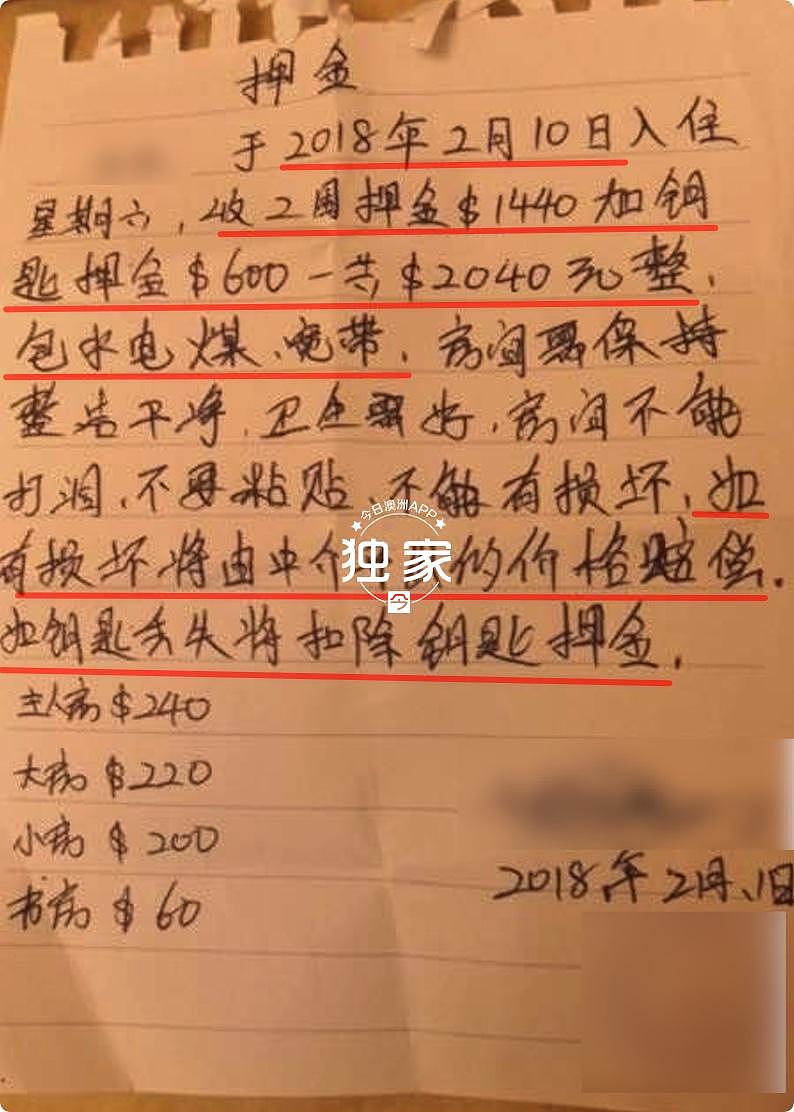 押金
于2018年2月10日入住
星期六，收2周押金$1440加钥
匙押金$600一共$2040元整.
包水电煤、宽带.房间要保持
整洁干净.卫生要好.房间不能
打洞.不要粘贴.不能有损坏.如
有损坏将由中介的价格赔偿.
如钥匙丢失将扣除钥匙押金.
今日澳洲APP
独家
今
主人房$240
大房$220
小房$200
书房$60
2018年2月.1日